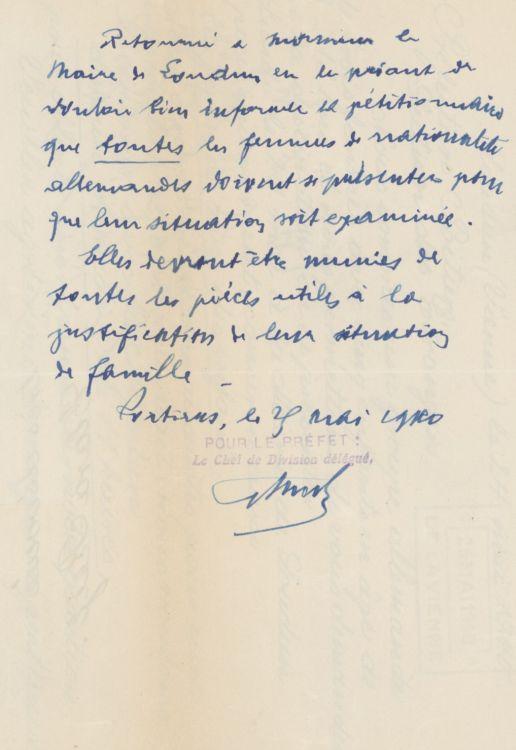 Retourné à Monsieur le
Maire de Loudun en le priant de
vouloir bien informer la pétitionnaire
que toutes les femmes de nationalité
allemandes doivent se présenter pour
que leur situation soit examinée.
Elles devront être munies de
toutes les pièces utiles à la
justification de leur situation
de famille
Poitiers, le mai 1940
POUR LE PRÉFET :
Le Chef de Division délégué,